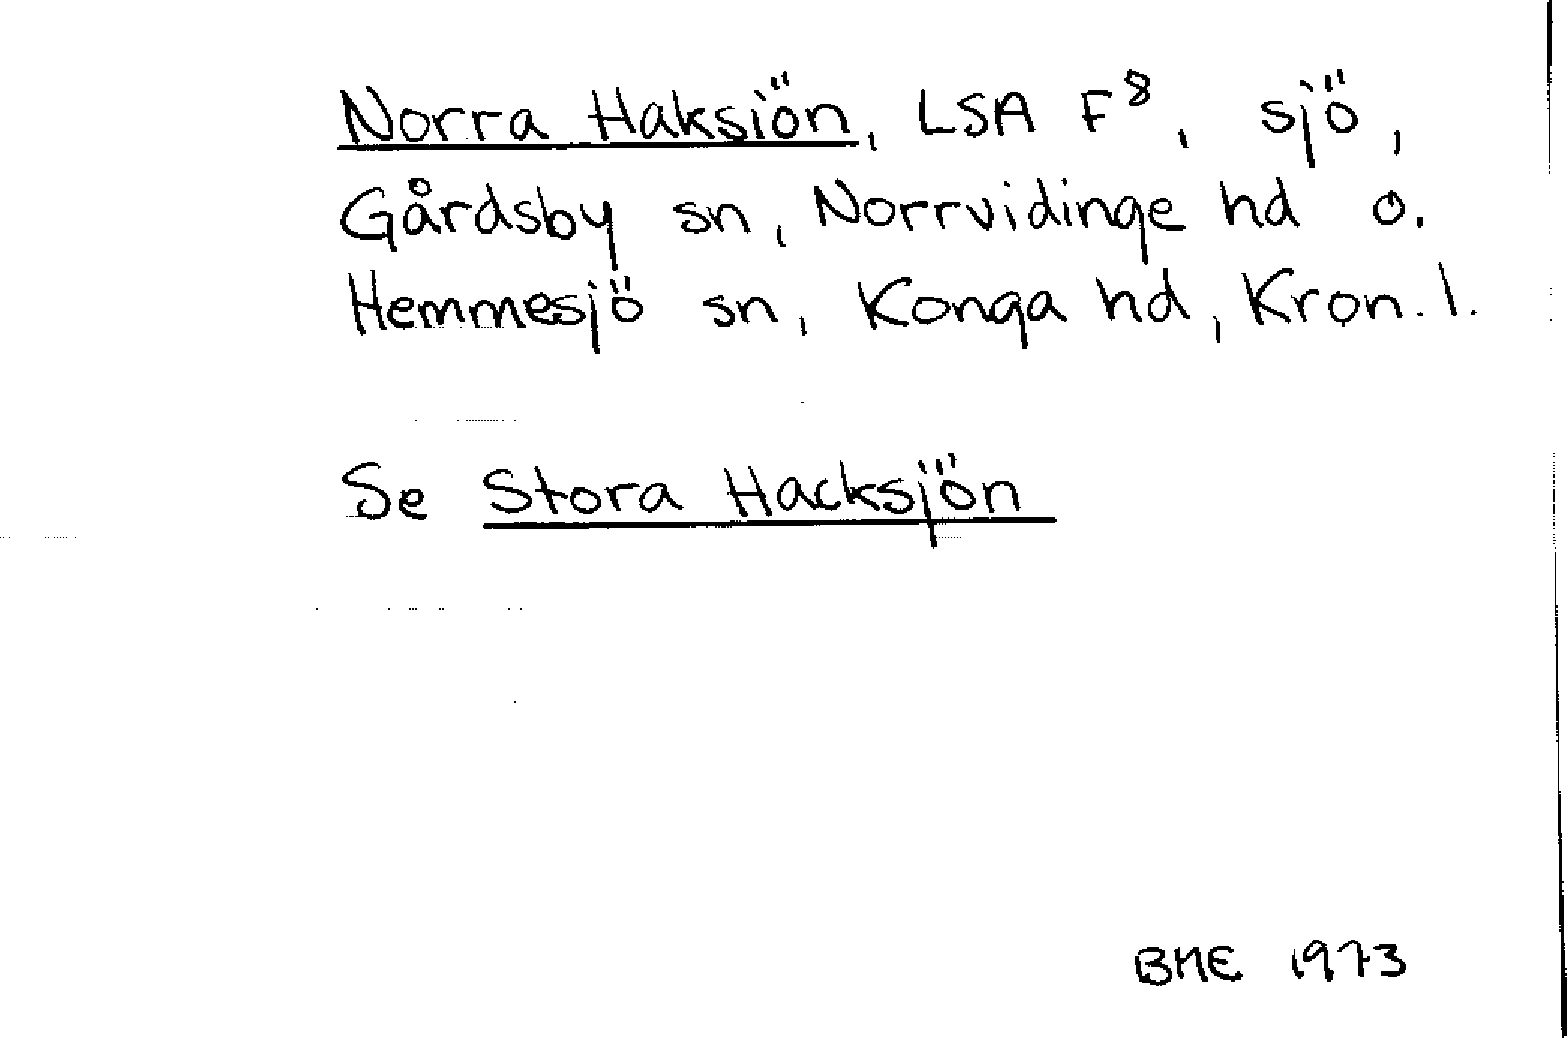 Norra Haksiön, LSA F⁸, sjö,
Gårdsby sn, Norrvidinge hd o.
Hemmesjö sn, Konga hd, Kron. l.
Se Stora Hacksjön
BME 1973